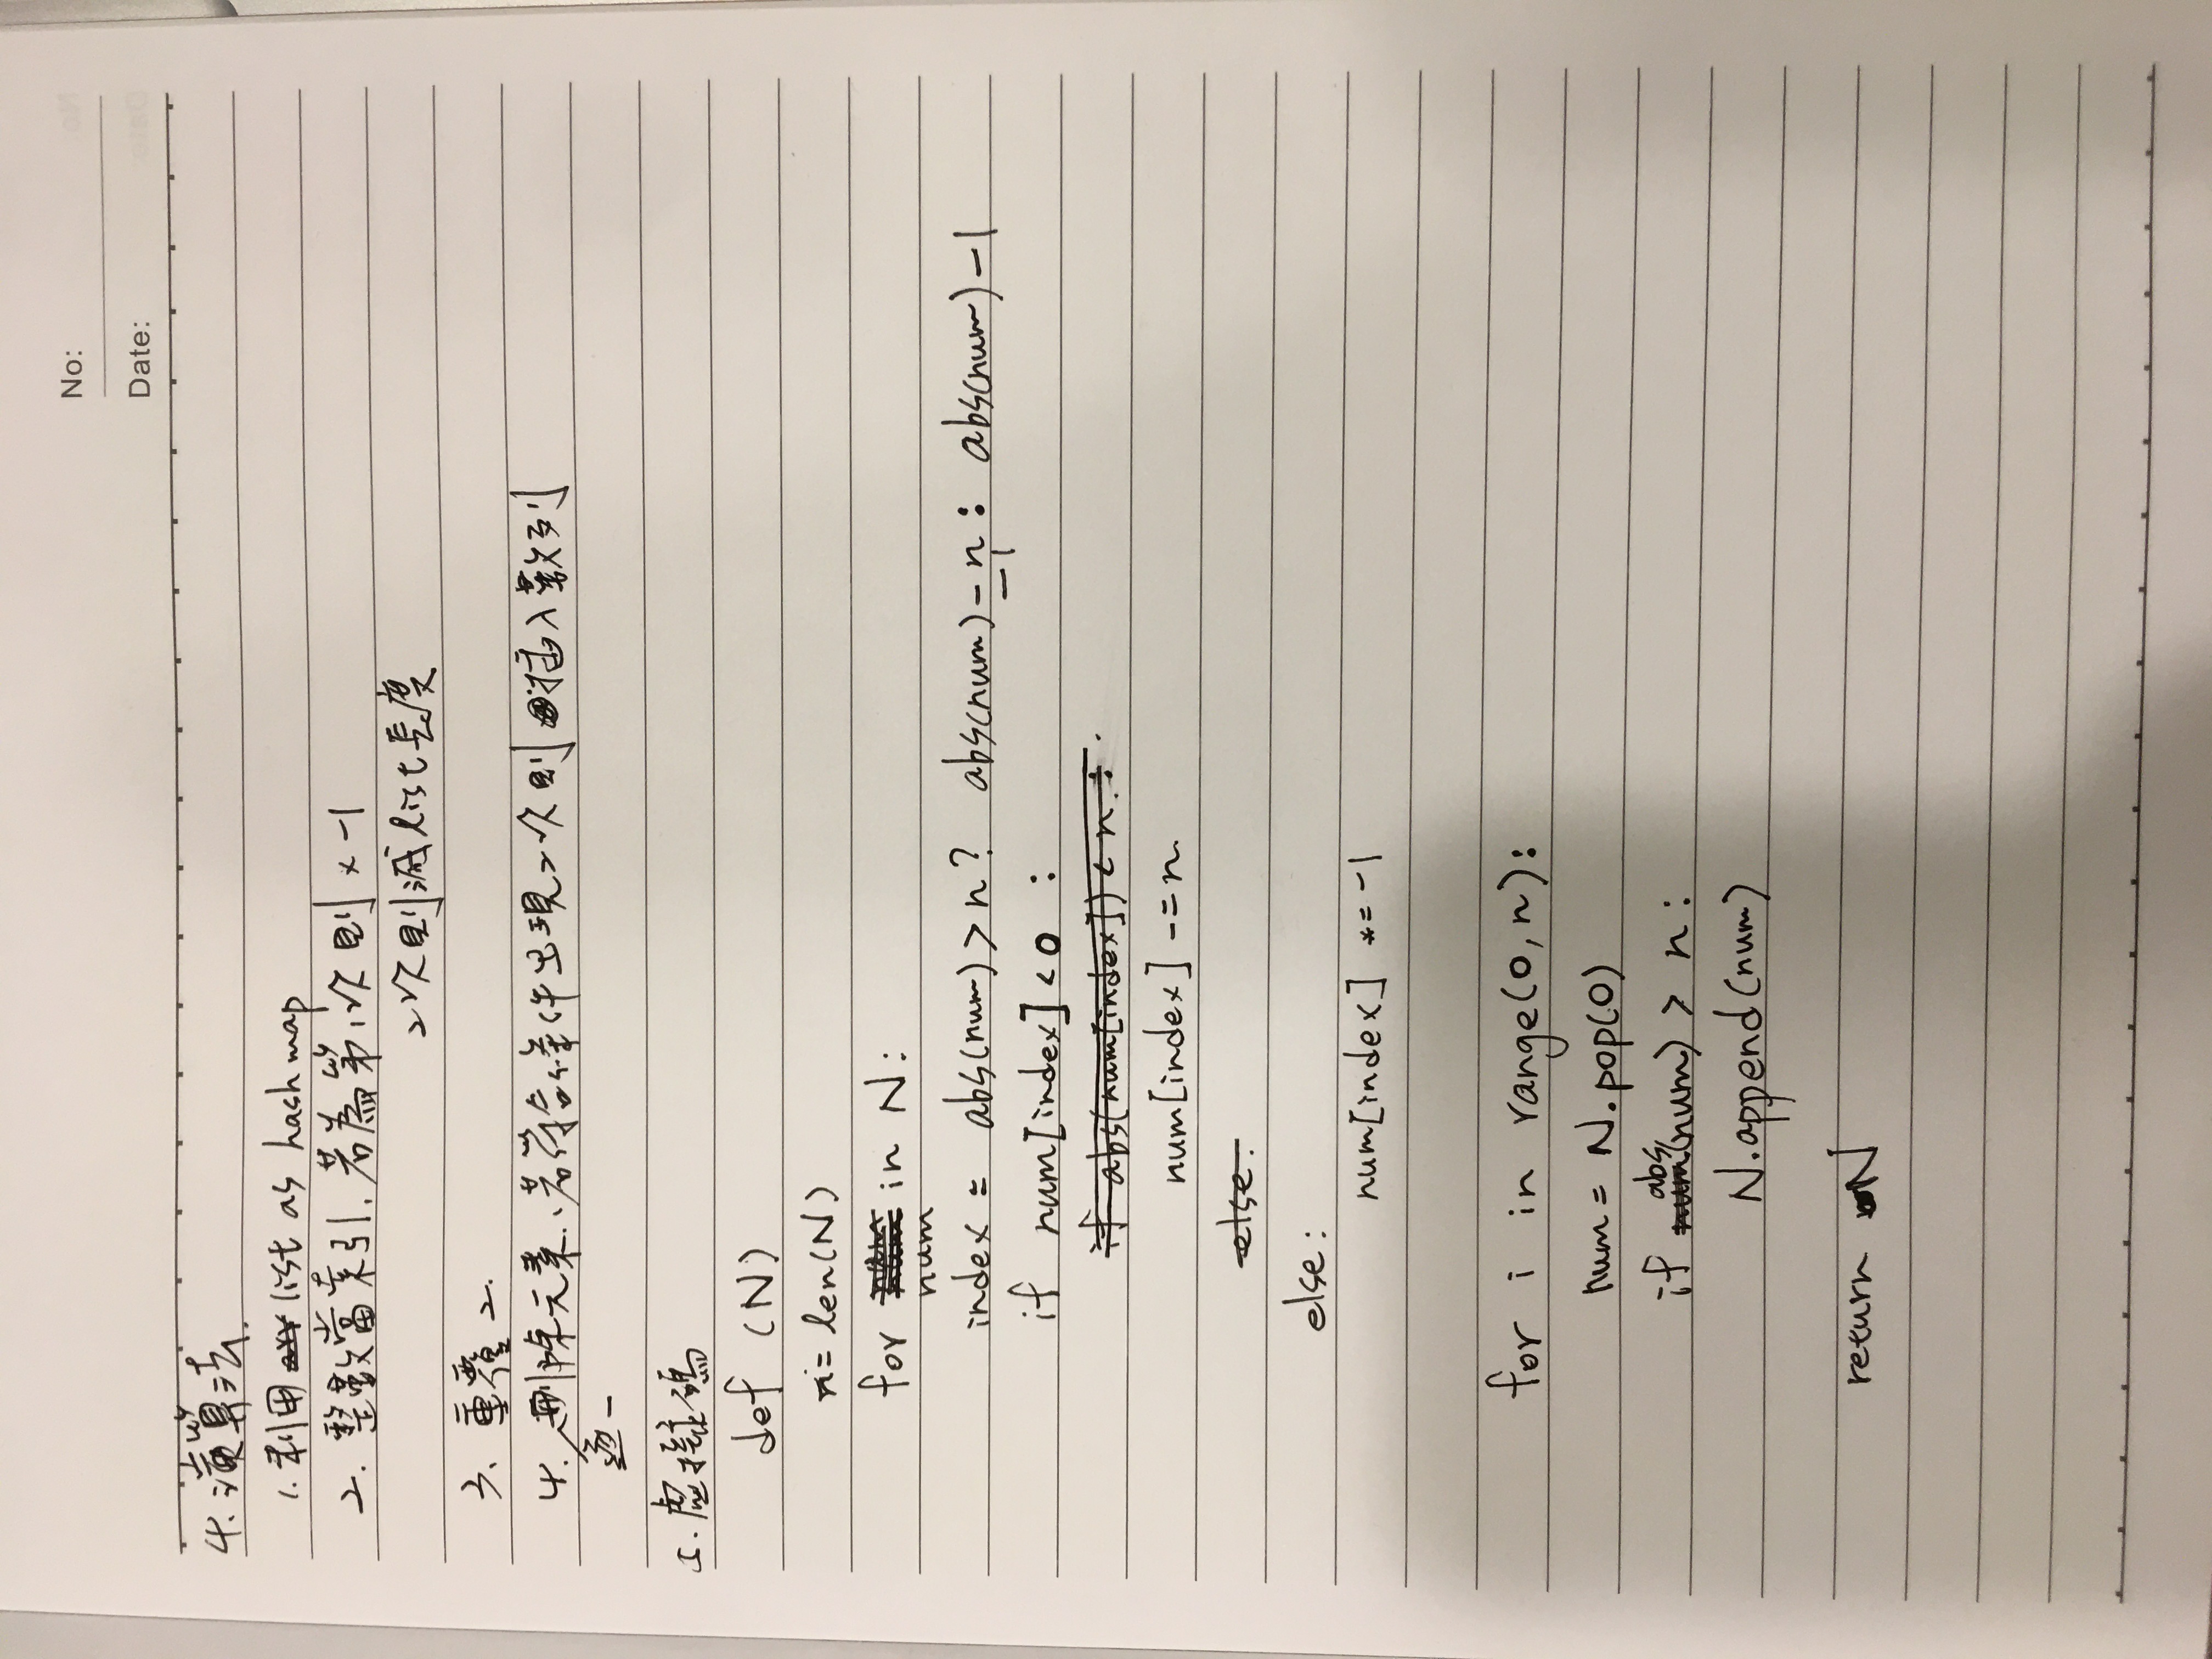 No:
Date:
4. 演算法.
1. 利用 list as hash map
2. 整數當索引, 若為第1次則 × -1
2次則減list長度
3. 重覆 2.
4. 逐一刪除元素, 若符合條件出現2次則插入數列
5. 虛擬碼
def (N)
n = len(N)
for num in N:
index = abs(num) > n ? abs(num) - n - 1 : abs(num) - 1
if num[index] < 0 :
if abs(num[index]) < n :
num[index] -= n
else:
else:
num[index] *= -1
for i in range(0, n):
num = N.pop(0)
if abs(num) > n:
N.append(num)
return N